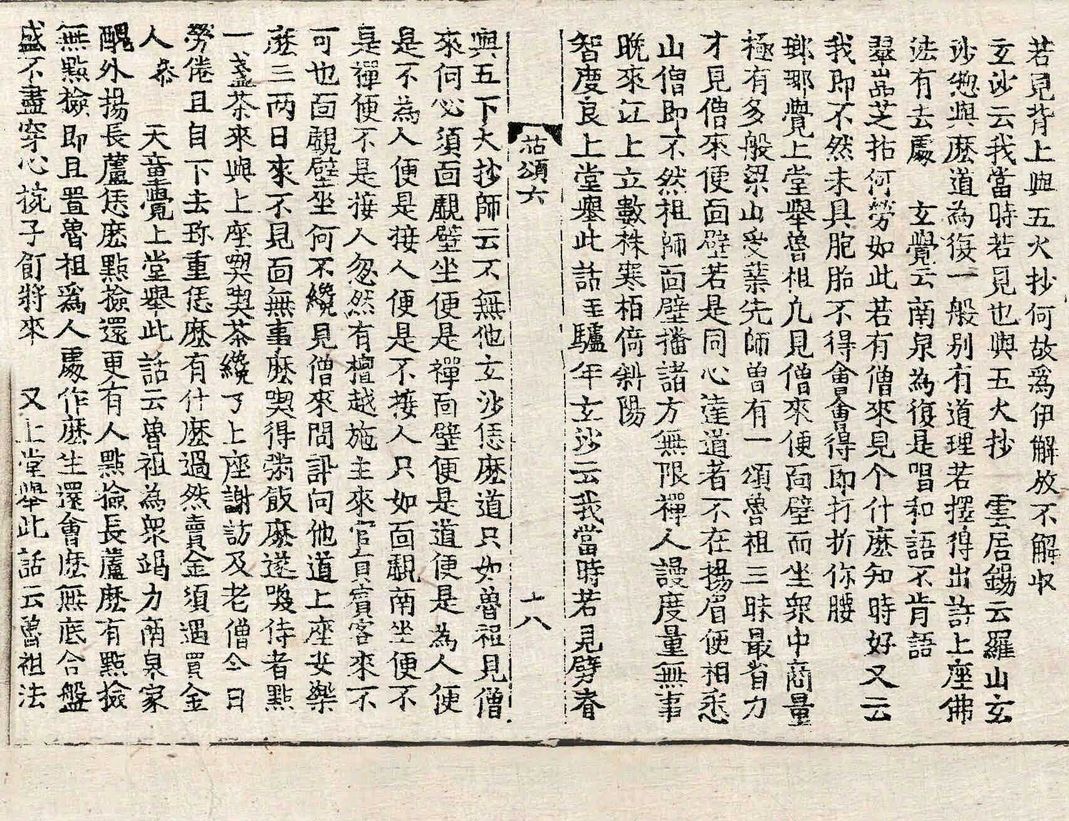 若見背上與五火抄何故爲伊解放不解収
玄沙云我當時若見也與五火抄　雲居錫云羅山玄
沙緫與麽道為復一般别有道理若擇得出許上座佛
法有去處　玄覺云南泉為復是唱和語不肯語
翠嵓芝拈何勞如此若有僧來見个什麽知時好又云
我即不然未具胞胎不得會會得即打折你腰
瑯瑘覺上堂舉魯祖凢見僧來便面壁而坐衆中商量
極有多般梁山受業先師曽有一頌魯祖三昧最省力
才見僧來便面壁若是同心達道者不在揚眉便相悉
山僧即不然祖師面壁播諸方無限禪人謾度量無事
晩來江上立數株寒栢倚斜陽
智度良上堂舉此話至驢年玄沙云我當時若見劈脊
拈頌六　十八
與五下火抄師云不無他玄沙恁麽道只如魯祖見僧
來何必須面覰壁坐便是禪面壁便是道便是為人便
是不為人便是接人便是不接人只如面覰南坐便不
是禪便不是接人忽然有檀越施主來官員賓客來不
可也面覰壁坐何不纔見僧來問訊向他道上座安樂
麽三两日來不見面無事麽喫得粥飯麽遂喚侍者點
一盞茶來與上座喫喫茶纔了上座謝訪及老僧今日
勞倦且自下去珎重恁麽有什麽過然賣金須遇買金
人叅　天童覺上堂舉此話云魯祖為衆竭力南泉家
醜外揚長蘆恁麽點撿還更有人點撿長蘆麽有點撿
無點撿即且置魯祖爲人處作麽生還會麽無底合盤
盛不盡穿心椀子飣將來　又上堂舉此話云魯祖法